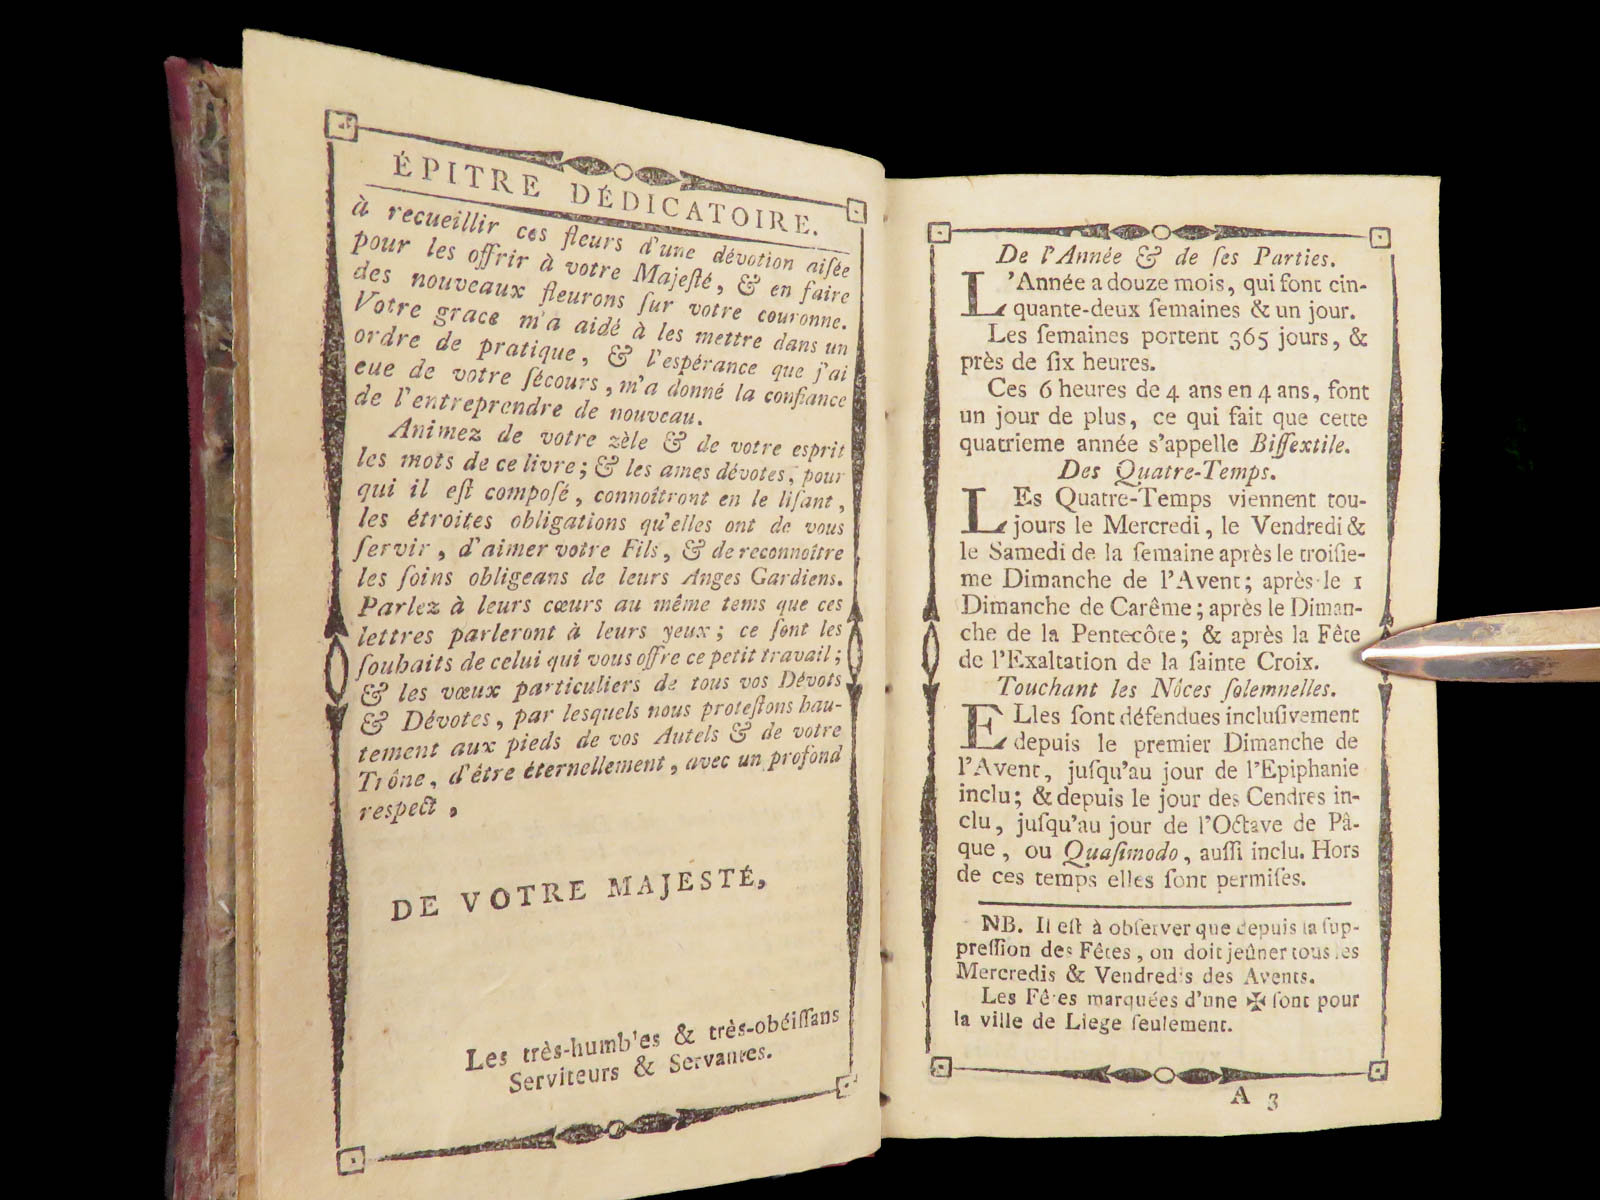 ÉPITRE DÉDICATOIRE.
à recueillir ces fleurs d'une dévotion aiſée
pour les offrir à votre Majeſté, & en faire
des nouveaux fleurons ſur votre couronne.
Votre grace m'a aidé à les mettre dans un
ordre de pratique, & l'espérance que j'ai
eue de votre ſécours, m'a donné la confiance
de l'entreprendre de nouveau.
Animez de votre zèle & de votre esprit
les mots de ce livre; & les ames dévotes, pour
qui il eſt compoſé, connoîtront en le liſant,
les étroites obligations qu'elles ont de vous
ſervir, d'aimer votre Fils, & de reconnoître
les ſoins obligeans de leurs Anges Gardiens.
Parlez à leurs cœurs au même tems que ces
lettres parleront à leurs yeux; ce ſont les
ſouhaits de celui qui vous offre ce petit travail;
& les vœux particuliers de tous vos Dévots
& Dévotes, par lesquels nous proteſtons hau-
tement aux pieds de vos Autels & de votre
Trône, d'être éternellement, avec un profond
reſpect,
DE VOTRE MAJESTÉ,
Les très-humbles & très-obéiſſans
Serviteurs & Servantes.
De l'Année & de ſes Parties.
L'Année a douze mois, qui font cin-
quante-deux ſemaines & un jour.
Les ſemaines portent 365 jours, &
près de ſix heures.
Ces 6 heures de 4 ans en 4 ans, font
un jour de plus, ce qui fait que cette
quatrieme année s'appelle Biſſextile.
Des Quatre-Temps.
LEs Quatre-Temps viennent tou-
jours le Mercredi, le Vendredi &
le Samedi de la ſemaine après le troiſie-
me Dimanche de l'Avent; après le 1
Dimanche de Carême; après le Diman-
che de la Pentecôte; & après la Fête
de l'Exaltation de la ſainte Croix.
Touchant les Nôces ſolemnelles.
ELles ſont défendues incluſivement
depuis le premier Dimanche de
l'Avent, juſqu'au jour de l'Epiphanie
inclu; & depuis le jour des Cendres in-
clu, juſqu'au jour de l'Octave de Pâ-
que, ou Quaſimodo, auſſi inclu. Hors
de ces temps elles ſont permiſes.
NB. Il eſt à obſerver que depuis la ſup-
preſſion des Fêtes, on doit jeûner tous les
Mercredis & Vendredis des Avents.
Les Fêtes marquées d'une ✠ ſont pour
la ville de Liege ſeulement.
A 3